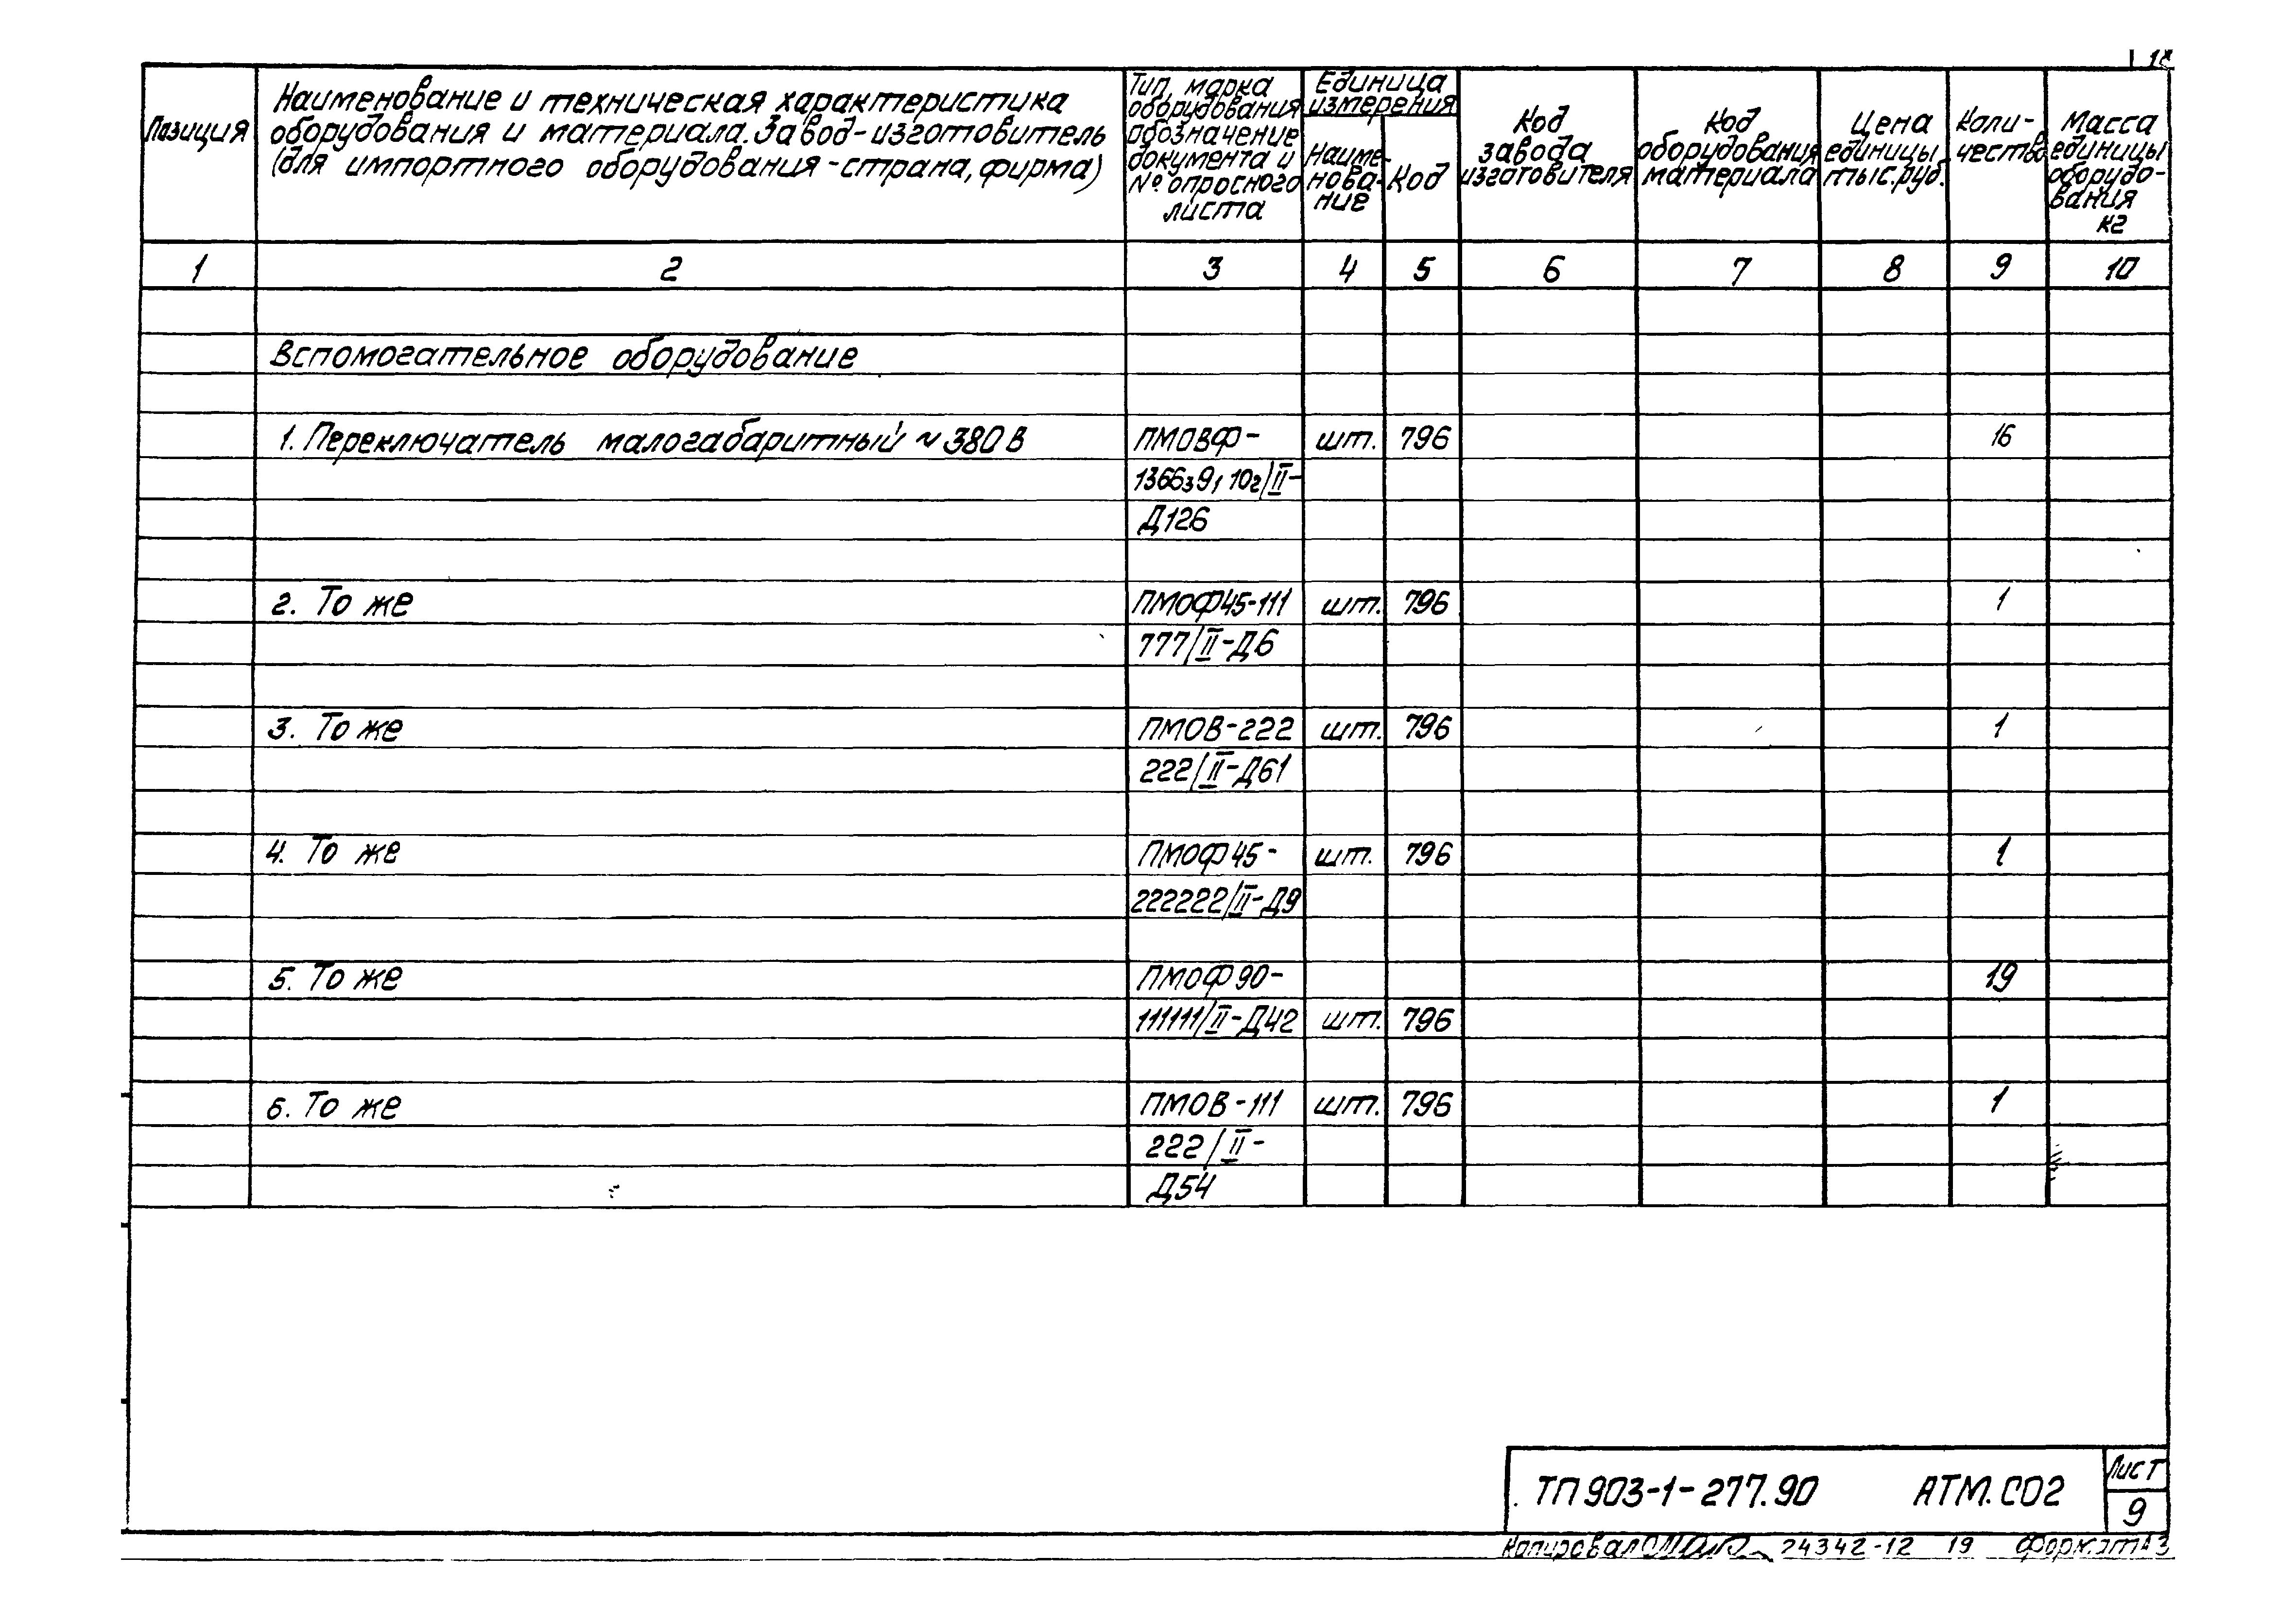 18
Позиция
Наименование и техническая характеристика
оборудования и материала. Завод-изготовитель
(для импортного оборудования - страна, фирма)
Тип, марка
оборудования
обозначение
документа и
№ опросного
листа
Единица
измерения
Наиме-
нова-
ние
Код
Код
завода
изготовителя
Код
оборудования
материала
Цена
единицы
тыс.руб.
Коли-
чество
Масса
единицы
оборудо-
вания
кг
1 2 3 4 5 6 7 8 9 10
Вспомогательное оборудование
1. Переключатель малогабаритный ~ 380 В ПМОВФ- шт. 796 16
1366₃9₁ 10₂/II-
Д126
2. То же ПМОФ45-111 шт. 796 1
777/II-Д6
3. То же ПМОВ-222 шт. 796 1
222/II-Д61
4. То же ПМОФ45- шт. 796 1
222222/II-Д9
5. То же ПМОФ90- 19
111111/II-Д42 шт. 796
6. То же ПМОВ-111 шт. 796 1
222/II-
Д54
ТП 903-1-277.90 АТМ.СО2
Лист
9
Копировал 24342-12 19 Формат А3